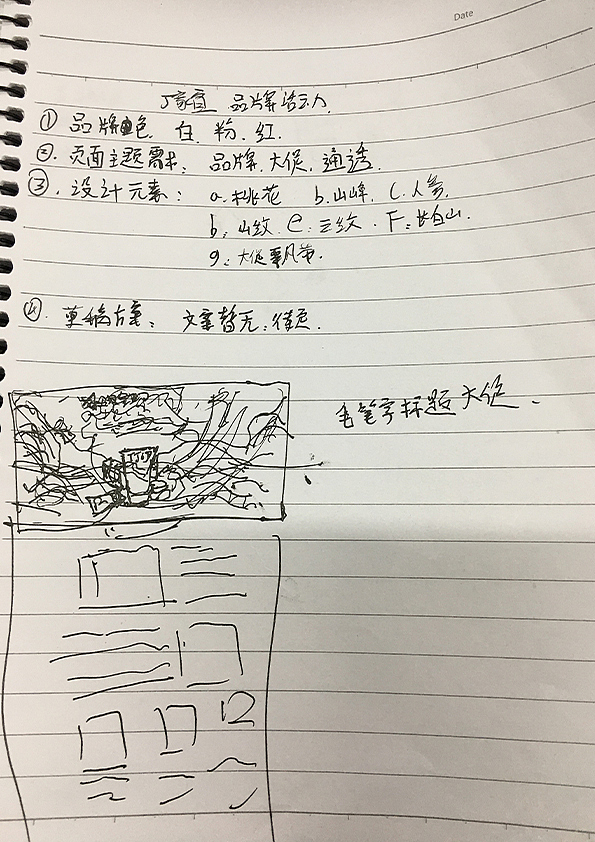 Date
品牌活动
① 品牌色 白 粉.红.
②.页面主题需求: 品牌.大促.通透.
③.设计元素: a.桃花 b.山峰. C.人参.
b:山纹. e.云纹. F:长白山.
g:大促飘带.
④.草稿方案: 文案暂无:待定.
毛笔字标题大促.